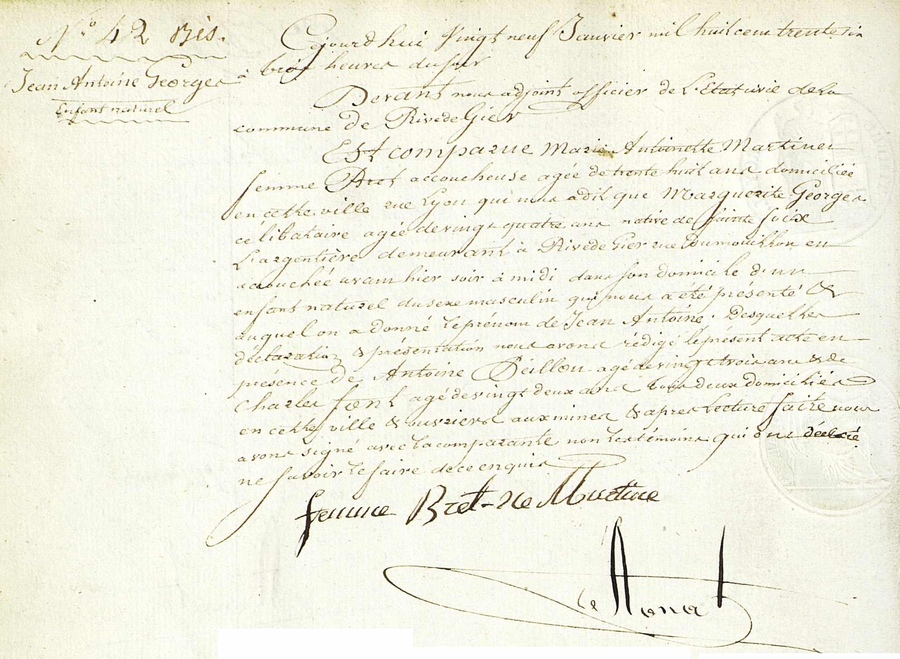 N.º 42 Bis.
Jean Antoine Georges
Enfant naturel
Cejourd'hui Vingt neuf Janvier mil huit cent trente six
à trois heures du soir
Devant nous adjoint officier de L'Etat civil de la
commune de Rive de Gier
Est comparue Marie Antoinette Martinet
femme Bret accoucheuse agée de trente huit ans domiciliée
en cette ville rue Lyon qui nous a dit que Marguerite Georges
celibataire agée de vingt quatre ans native de Sainte foix
L'argentière demeurant à Rive de Gier rue Dumouillon en
accouchée avant hier soir à midi dans son domicile d'un
enfant naturel du sexe masculin qui nous a été présenté &
auquel on a donné le prénom de Jean Antoine; Desquelles
déclaration & présentation nous avons rédigé le présent acte en
présence de Antoine Peillon agé de vingt trois ans & de
Charles font agé de vingt deux ans tous deux domiciliés
en cette ville & ouvriers aux mines & après Lecture faite nous
avons signé avec la comparante non les témoins qui ont déclaré
ne savoir le faire de ce enquis
femme Bret née Martine